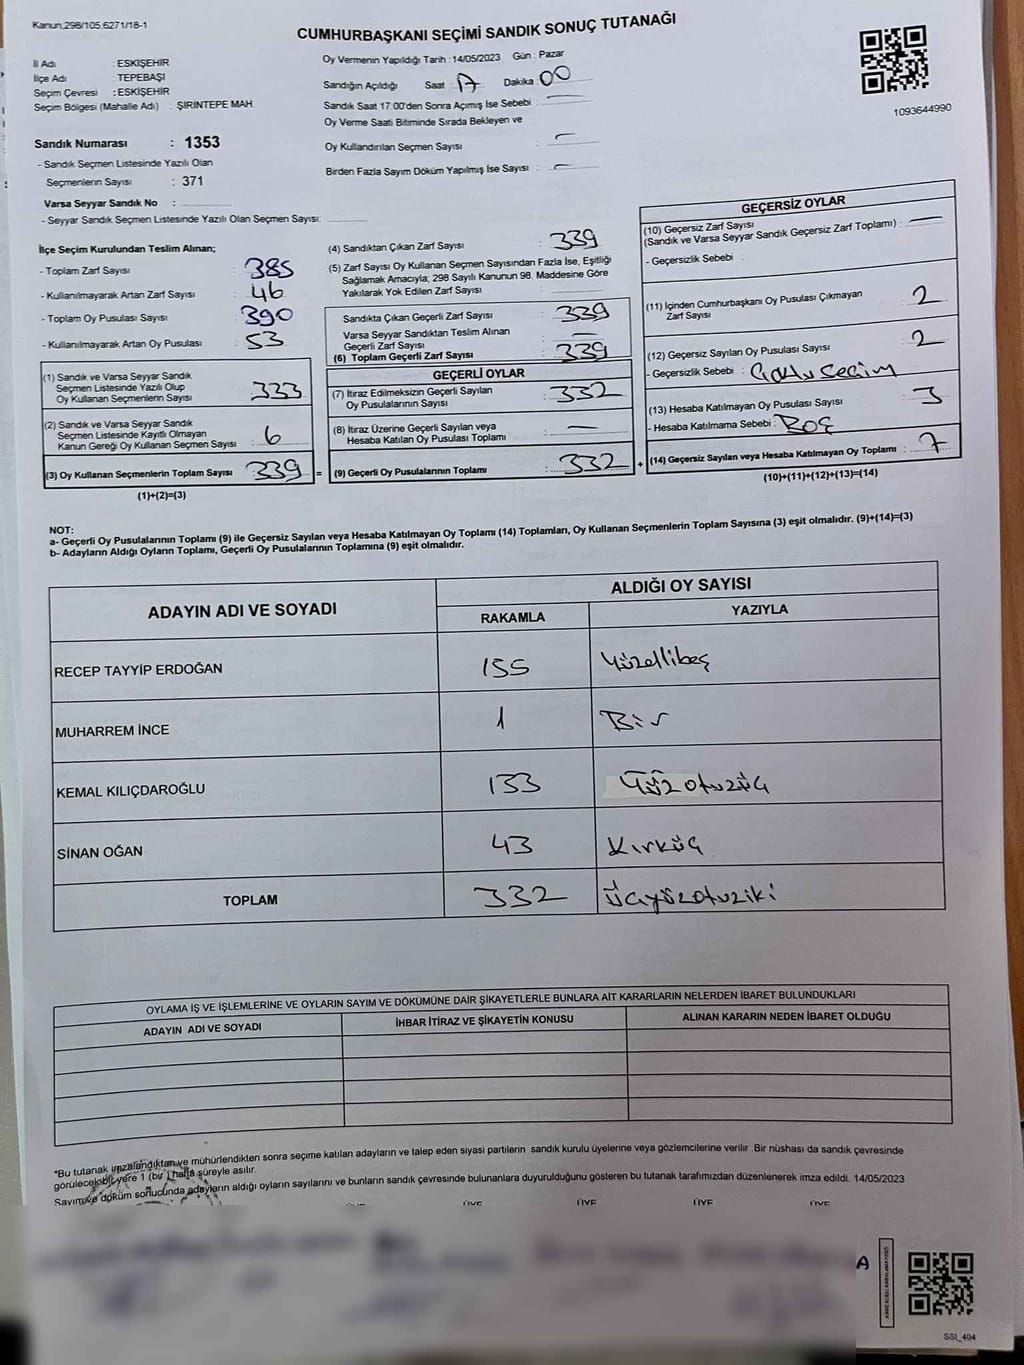 Kanun,298/105,6271/18-1
CUMHURBAŞKANI SEÇİMİ SANDIK SONUÇ TUTANAĞI
1093644990
İl Adı : ESKİŞEHİR
İlçe Adı : TEPEBAŞI
Seçim Çevresi : ESKİŞEHİR
Seçim Bölgesi (Mahalle Adı) : ŞİRİNTEPE MAH.
Sandık Numarası : 1353
- Sandık Seçmen Listesinde Yazılı Olan
Seçmenlerin Sayısı : 371
Varsa Seyyar Sandık No :
- Seyyar Sandık Seçmen Listesinde Yazılı Olan Seçmen Sayısı:
Oy Vermenin Yapıldığı Tarih : 14/05/2023 Gün : Pazar
Sandığın Açıldığı Saat : 17 Dakika : 00
Sandık Saat 17:00'den Sonra Açılmış İse Sebebi : —
Oy Verme Saati Bitiminde Sırada Bekleyen ve
Oy Kullandırılan Seçmen Sayısı : —
Birden Fazla Sayım Döküm Yapılmış İse Sayısı : —
İlçe Seçim Kurulundan Teslim Alınan;
- Toplam Zarf Sayısı : 385
- Kullanılmayarak Artan Zarf Sayısı : 46
- Toplam Oy Pusulası Sayısı : 390
- Kullanılmayarak Artan Oy Pusulası : 53
(1) Sandık ve Varsa Seyyar Sandık
Seçmen Listesinde Yazılı Olup
Oy Kullanan Seçmenlerin Sayısı : 333
(2) Sandık ve Varsa Seyyar Sandık
Seçmen Listesinde Kayıtlı Olmayan
Kanun Gereği Oy Kullanan Seçmen Sayısı : 6
(3) Oy Kullanan Seçmenlerin Toplam Sayısı : 339
(1)+(2)=(3)
(4) Sandıktan Çıkan Zarf Sayısı : 339
(5) Zarf Sayısı Oy Kullanan Seçmen Sayısından Fazla İse, Eşitliği
Sağlamak Amacıyla; 298 Sayılı Kanunun 98. Maddesine Göre
Yakılarak Yok Edilen Zarf Sayısı :
Sandıkta Çıkan Geçerli Zarf Sayısı : 339
Varsa Seyyar Sandıktan Teslim Alınan
Geçerli Zarf Sayısı : —
(6) Toplam Geçerli Zarf Sayısı : 339
GEÇERLİ OYLAR
(7) İtiraz Edilmeksizin Geçerli Sayılan
Oy Pusulalarının Sayısı : 332
(8) İtiraz Üzerine Geçerli Sayılan veya
Hesaba Katılan Oy Pusulası Toplamı : —
= (9) Geçerli Oy Pusulalarının Toplamı : 332 +
GEÇERSİZ OYLAR
(10) Geçersiz Zarf Sayısı
(Sandık ve Varsa Seyyar Sandık Geçersiz Zarf Toplamı) : —
- Geçersizlik Sebebi :
(11) İçinden Cumhurbaşkanı Oy Pusulası Çıkmayan
Zarf Sayısı : 2
(12) Geçersiz Sayılan Oy Pusulası Sayısı : 2
- Geçersizlik Sebebi : Çoklu seçim
(13) Hesaba Katılmayan Oy Pusulası Sayısı : 3
- Hesaba Katılmama Sebebi : Boş
(14) Geçersiz Sayılan veya Hesaba Katılmayan Oy Toplamı : 7
(10)+(11)+(12)+(13)=(14)
NOT:
a- Geçerli Oy Pusulalarının Toplamı (9) ile Geçersiz Sayılan veya Hesaba Katılmayan Oy Toplamı (14) Toplamları, Oy Kullanan Seçmenlerin Toplam Sayısına (3) eşit olmalıdır. (9)+(14)=(3)
b- Adayların Aldığı Oyların Toplamı, Geçerli Oy Pusulalarının Toplamına (9) eşit olmalıdır.
ADAYIN ADI VE SOYADI
ALDIĞI OY SAYISI
RAKAMLA YAZIYLA
RECEP TAYYİP ERDOĞAN 155 Yüzellibeş
MUHARREM İNCE 1 Bir
KEMAL KILIÇDAROĞLU 133 Yüzotuzüç
SİNAN OĞAN 43 Kırküç
TOPLAM 332 Üçyüzotuziki
OYLAMA İŞ VE İŞLEMLERİNE VE OYLARIN SAYIM VE DÖKÜMÜNE DAİR ŞİKAYETLERLE BUNLARA AİT KARARLARIN NELERDEN İBARET BULUNDUKLARI
ADAYIN ADI VE SOYADI İHBAR İTİRAZ VE ŞİKAYETİN KONUSU ALINAN KARARIN NEDEN İBARET OLDUĞU
*Bu tutanak imzalandıktan ve mühürlendikten sonra seçime katılan adayların ve talep eden siyasi partilerin sandık kurulu üyelerine veya gözlemcilerine verilir. Bir nüshası da sandık çevresinde
görülecek bir yere 1 (bir) hafta süreyle asılır.
Sayım ve döküm sonucunda adayların aldığı oyların sayılarını ve bunların sandık çevresinde bulunanlara duyurulduğunu gösteren bu tutanak tarafımızdan düzenlenerek imza edildi. 14/05/2023
ÜYE ÜYE ÜYE ÜYE
A
SSI_404